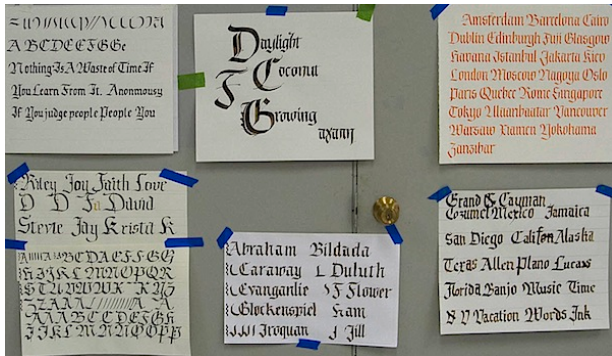 A B C D E E F G G e
Nothing Is A Waste of Time If
You Learn From It. Anonmousy
If You judge people People You
Daylight
Coconu
F G
Growing
Amsterdam Barcelona Cairo
Dublin Edinburgh Fuji Glasgow
Havana Istanbul Jakarta Kiev
London Moscow Nagoya Oslo
Paris Quebec Rome Singapore
Tokyo Ulaanbaatar Vancouver
Warsaw Xiamen Yokohama
Zanzibar
Riley Joy Faith Love
D D Fa David
Stevie Jay Krista K
A B C D A E F G G
H I J K L M N O P Q R
A A A B C D E F G h
I J K L M N N O O P P
Abraham Bildada
Caraway L Duluth
Evanganlie F Flower
Glockenspiel Ham
Iroquan J Jill
Grand & Cayman
Cozumel Mexico Jamaica
San Diego Califon Alaska
Teras Allen Plano Lucaus
Florida Banjo Music Time
Vacation Words Ink